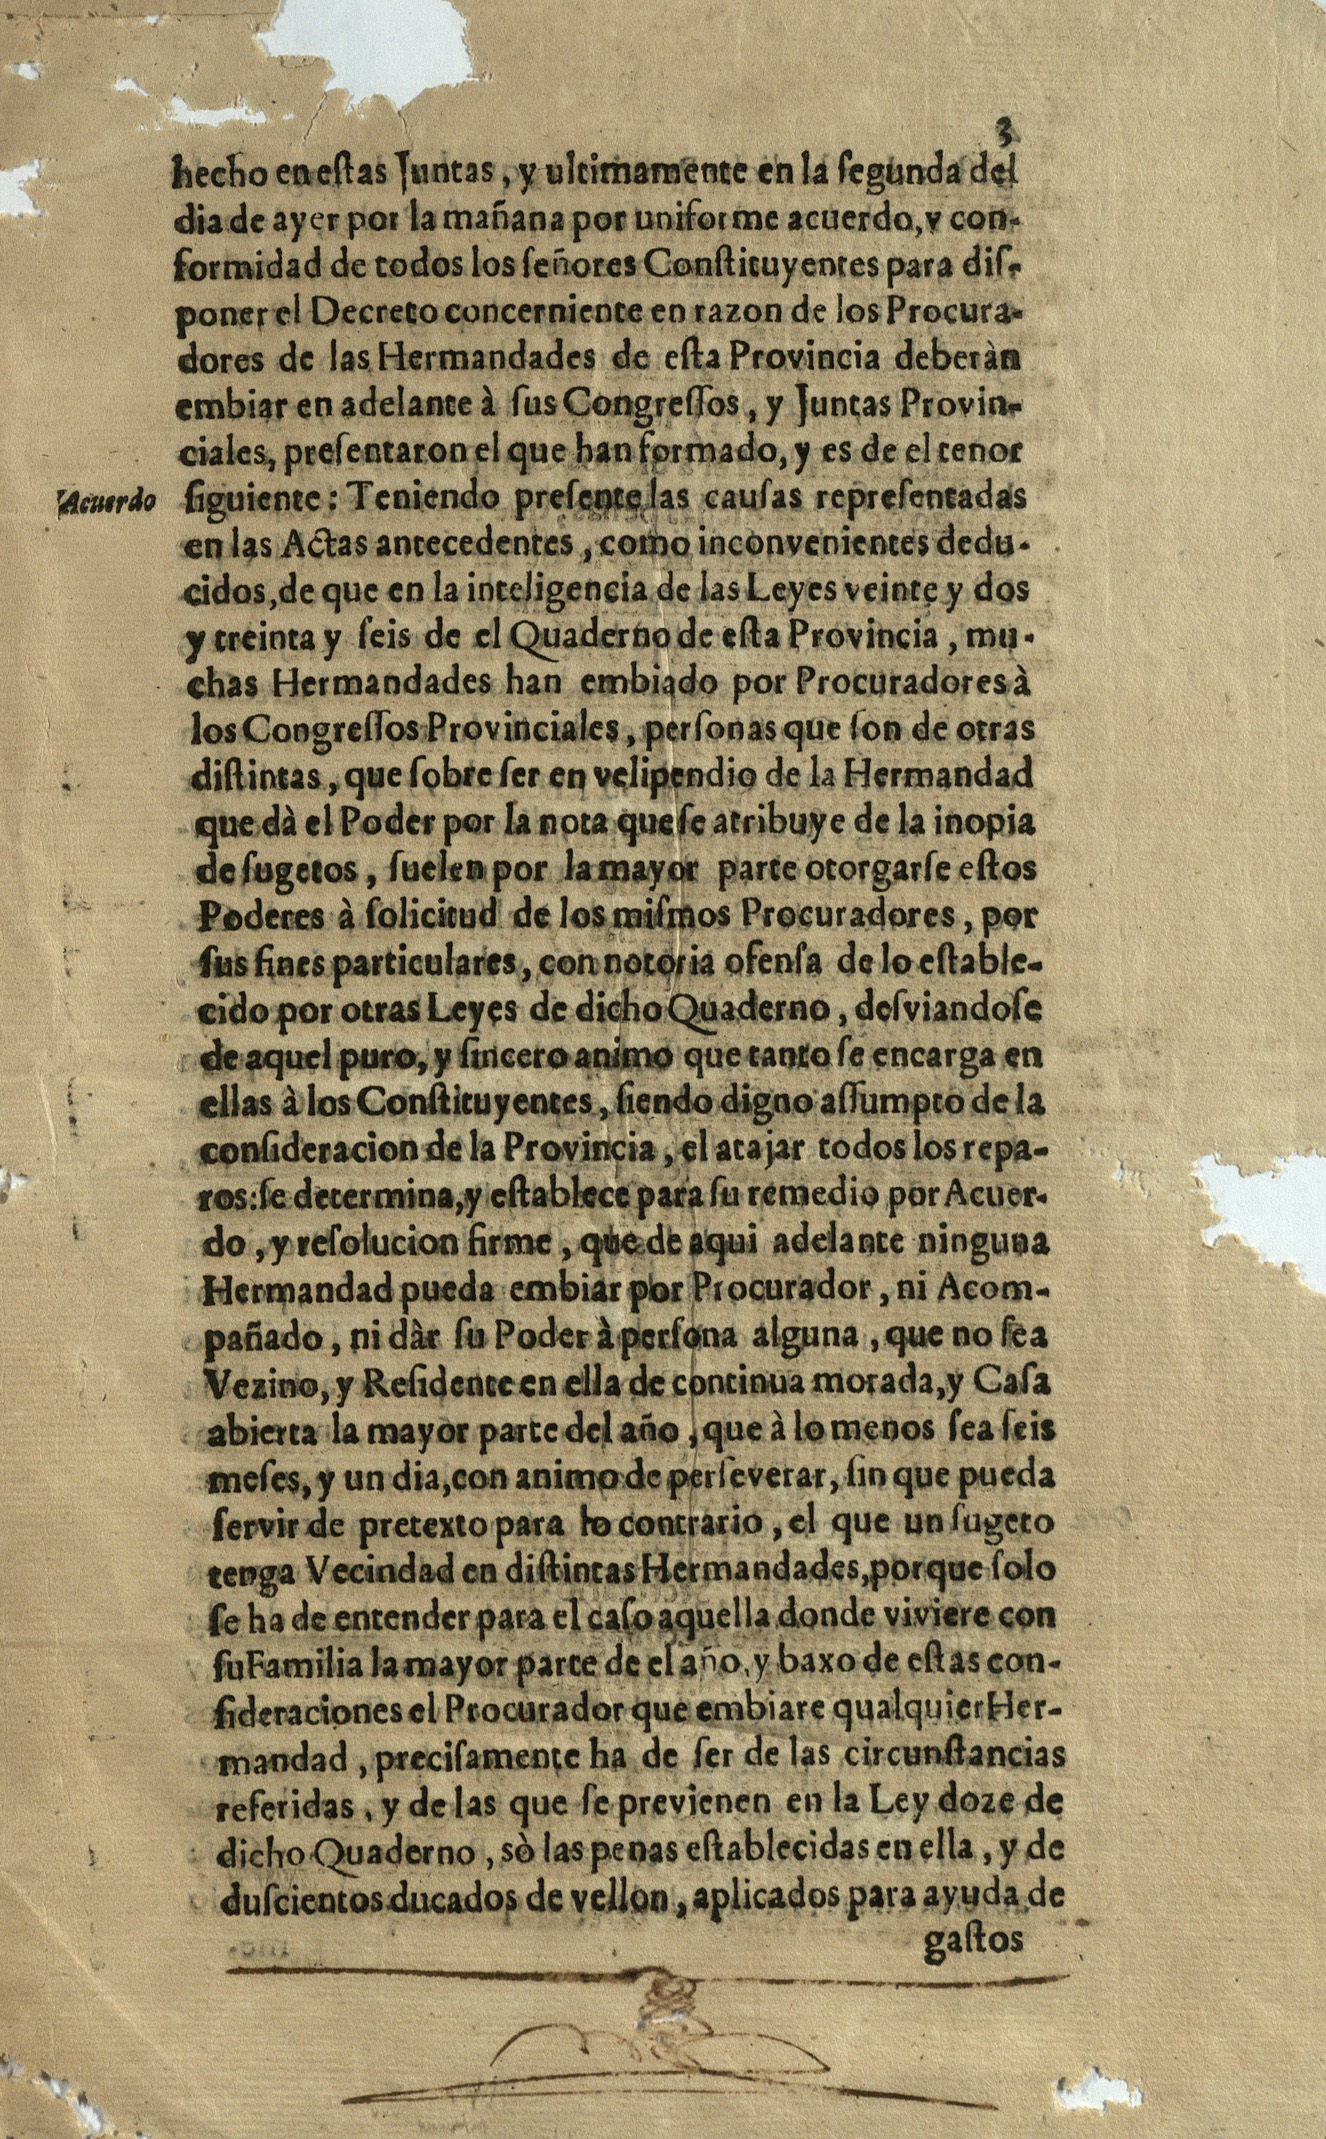 3
hecho en eſtas Juntas, y ultimamente en la ſegunda del
dia de ayer por la mañana por uniforme acuerdo, y con-
formidad de todos los ſeñores Conſtituyentes para diſ-
poner el Decreto concerniente en razon de los Procura-
dores de las Hermandades de eſta Provincia deberàn
embiar en adelante à ſus Congreſſos, y Juntas Provin-
ciales, preſentaron el que han formado, y es de el tenor
Acuerdo ſiguiente: Teniendo preſente las cauſas repreſentadas
en las Actas antecedentes, como inconvenientes dedu-
cidos, de que en la inteligencia de las Leyes veinte y dos
y treinta y ſeis de el Quaderno de eſta Provincia, mu-
chas Hermandades han embiado por Procuradores à
los Congreſſos Provinciales, perſonas que ſon de otras
diſtintas, que ſobre ſer en velipendio de la Hermandad
que dà el Poder por la nota que ſe atribuye de la inopia
de ſugetos, ſuelen por la mayor parte otorgarſe eſtos
Poderes à ſolicitud de los miſmos Procuradores, por
ſus fines particulares, con notoria ofenſa de lo eſtable-
cido por otras Leyes de dicho Quaderno, deſviandoſe
de aquel puro, y ſincero animo que tanto ſe encarga en
ellas à los Conſtituyentes, ſiendo digno aſſumpto de la
conſideracion de la Provincia, el atajar todos los repa-
ros: ſe determina, y eſtablece para ſu remedio por Acuer-
do, y reſolucion firme, que de aqui adelante ninguna
Hermandad pueda embiar por Procurador, ni Acom-
pañado, ni dàr ſu Poder à perſona alguna, que no ſea
Vezino, y Reſidente en ella de continua morada, y Caſa
abierta la mayor parte del año, que à lo menos ſea ſeis
meſes, y un dia, con animo de perſeverar, ſin que pueda
ſervir de pretexto para lo contrario, el que un ſugeto
tenga Vecindad en diſtintas Hermandades, porque ſolo
ſe ha de entender para el caſo aquella donde viviere con
ſu Familia la mayor parte de el año, y baxo de eſtas con-
ſideraciones el Procurador que embiare qualquier Her-
mandad, preciſamente ha de ſer de las circunſtancias
referidas, y de las que ſe previenen en la Ley doze de
dicho Quaderno, sò las penas eſtablecidas en ella, y de
duſcientos ducados de vellon, aplicados para ayuda de
gaſtos